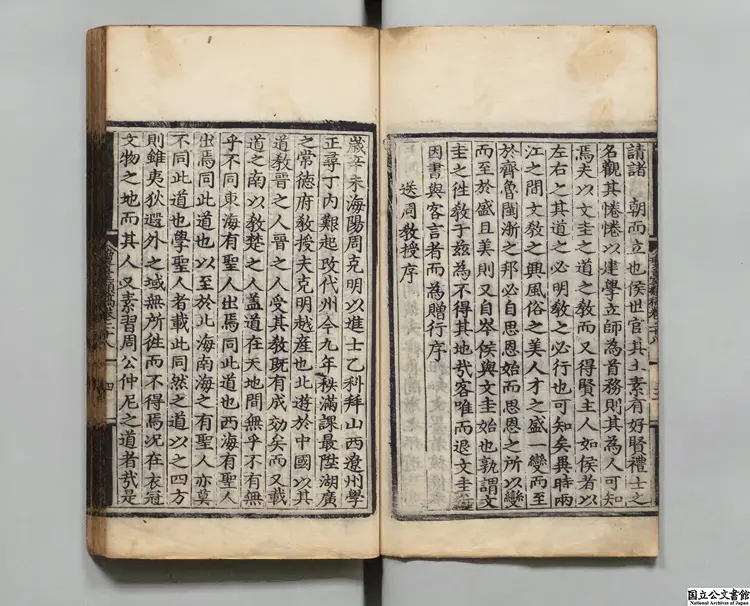 請諸　朝而立也侯世官其土素有好賢禮士之
名觀其惓惓以建學立師為首務則其為人可知
焉夫以文圭之道之教而又得賢主人如侯者以
左右之其道之必明教之必行也可知矣異時兩
江之間文教之興風俗之美人才之盛一變而至
於齊魯閩浙之邦必自思恩始而思恩之所以變
而至於盛且美則又自岑侯與文圭始也孰謂文
圭之徃教于茲為不得其地㢤客唯而退文圭行
因書與客言者而為贈行序
送周教授序
歲辛未海陽周克明以進士乙科拜山西遼州學
正尋丁內艱起改代州今九年秩滿課最陞湖廣
之常德府教授夫克明越産也北遊於中國以其
道教晉之人晉之人受其教既有成効矣而又載
道之南以教楚之人盖道在天地間無乎不有無
乎不同東海有聖人出焉同此道也西海有聖人
出焉同此道也以至於北海南海之有聖人亦莫
不同此道也學聖人者載此同然之道以之四方
則雖夷狄遐外之域無所徃而不得焉况在衣冠
文物之地而其人又素習周公仲尼之道者㢤是
國立公文書館
National Archives of Japan